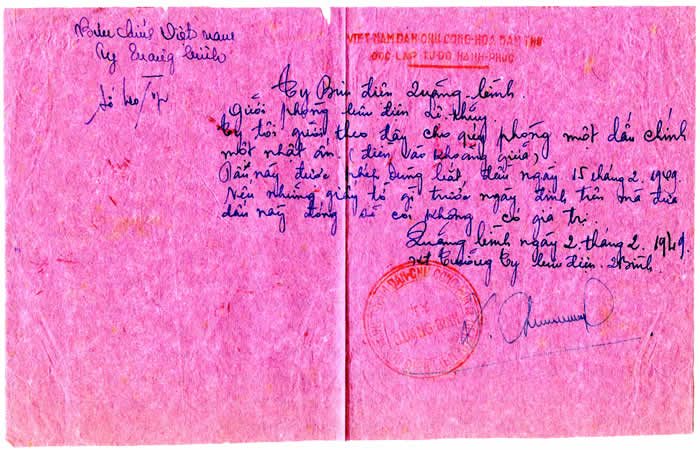 Bưu chính Việt nam
Ty Quảng Bình
Số 420/
VIỆT-NAM DÂN CHỦ CỘNG-HÒA DÂN THỨ
ĐỘC-LẬP TỰ-DO HẠNH-PHÚC
Ty Bưu điện Quảng-bình
Gửi phòng bưu điện Lệ thủy
Ty tôi gửi theo đây cho quý phòng một dấu chính
một nhật ấn. (điền vào khoảng giữa)
Dấu này được phép dùng bắt đầu ngày 15 tháng 2. 1949.
Nếu những giấy tờ gì trước ngày định trên mà đưa
dấu này đóng sẽ coi không có giá trị.
Quảng bình ngày 2. tháng 2. 1949.
Trưởng Ty bưu điện. Q Bình.
QUẢNG BÌNH